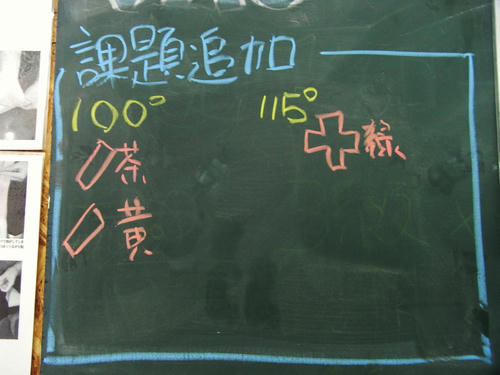 課題追加
100° 115°
茶 緑
黄